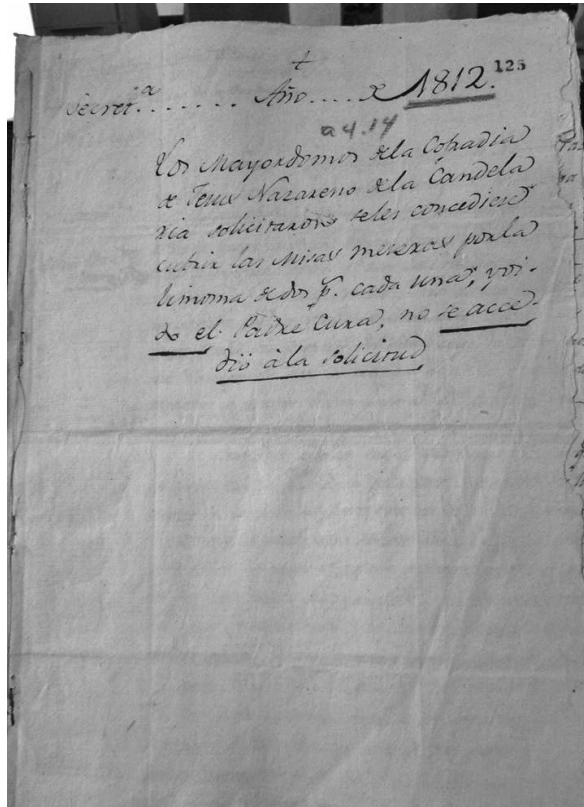 +
125
Secret.ª . . . . . . . Año . . . . de 1812.
a4.14
Los Mayordomos dela Cofradia
de Jesus Nazareno dela Candela
ria solicitaron seles concediese
cubrir las Misas meseras porla
limosna de dos p.s cada una, y oi-
do el Padre Cura, no se acce-
dió àla solicitud